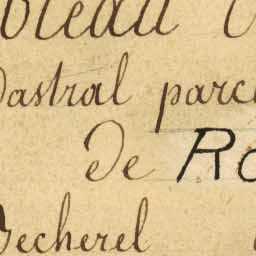 bleau
dastral parc
de Ro
Becherel